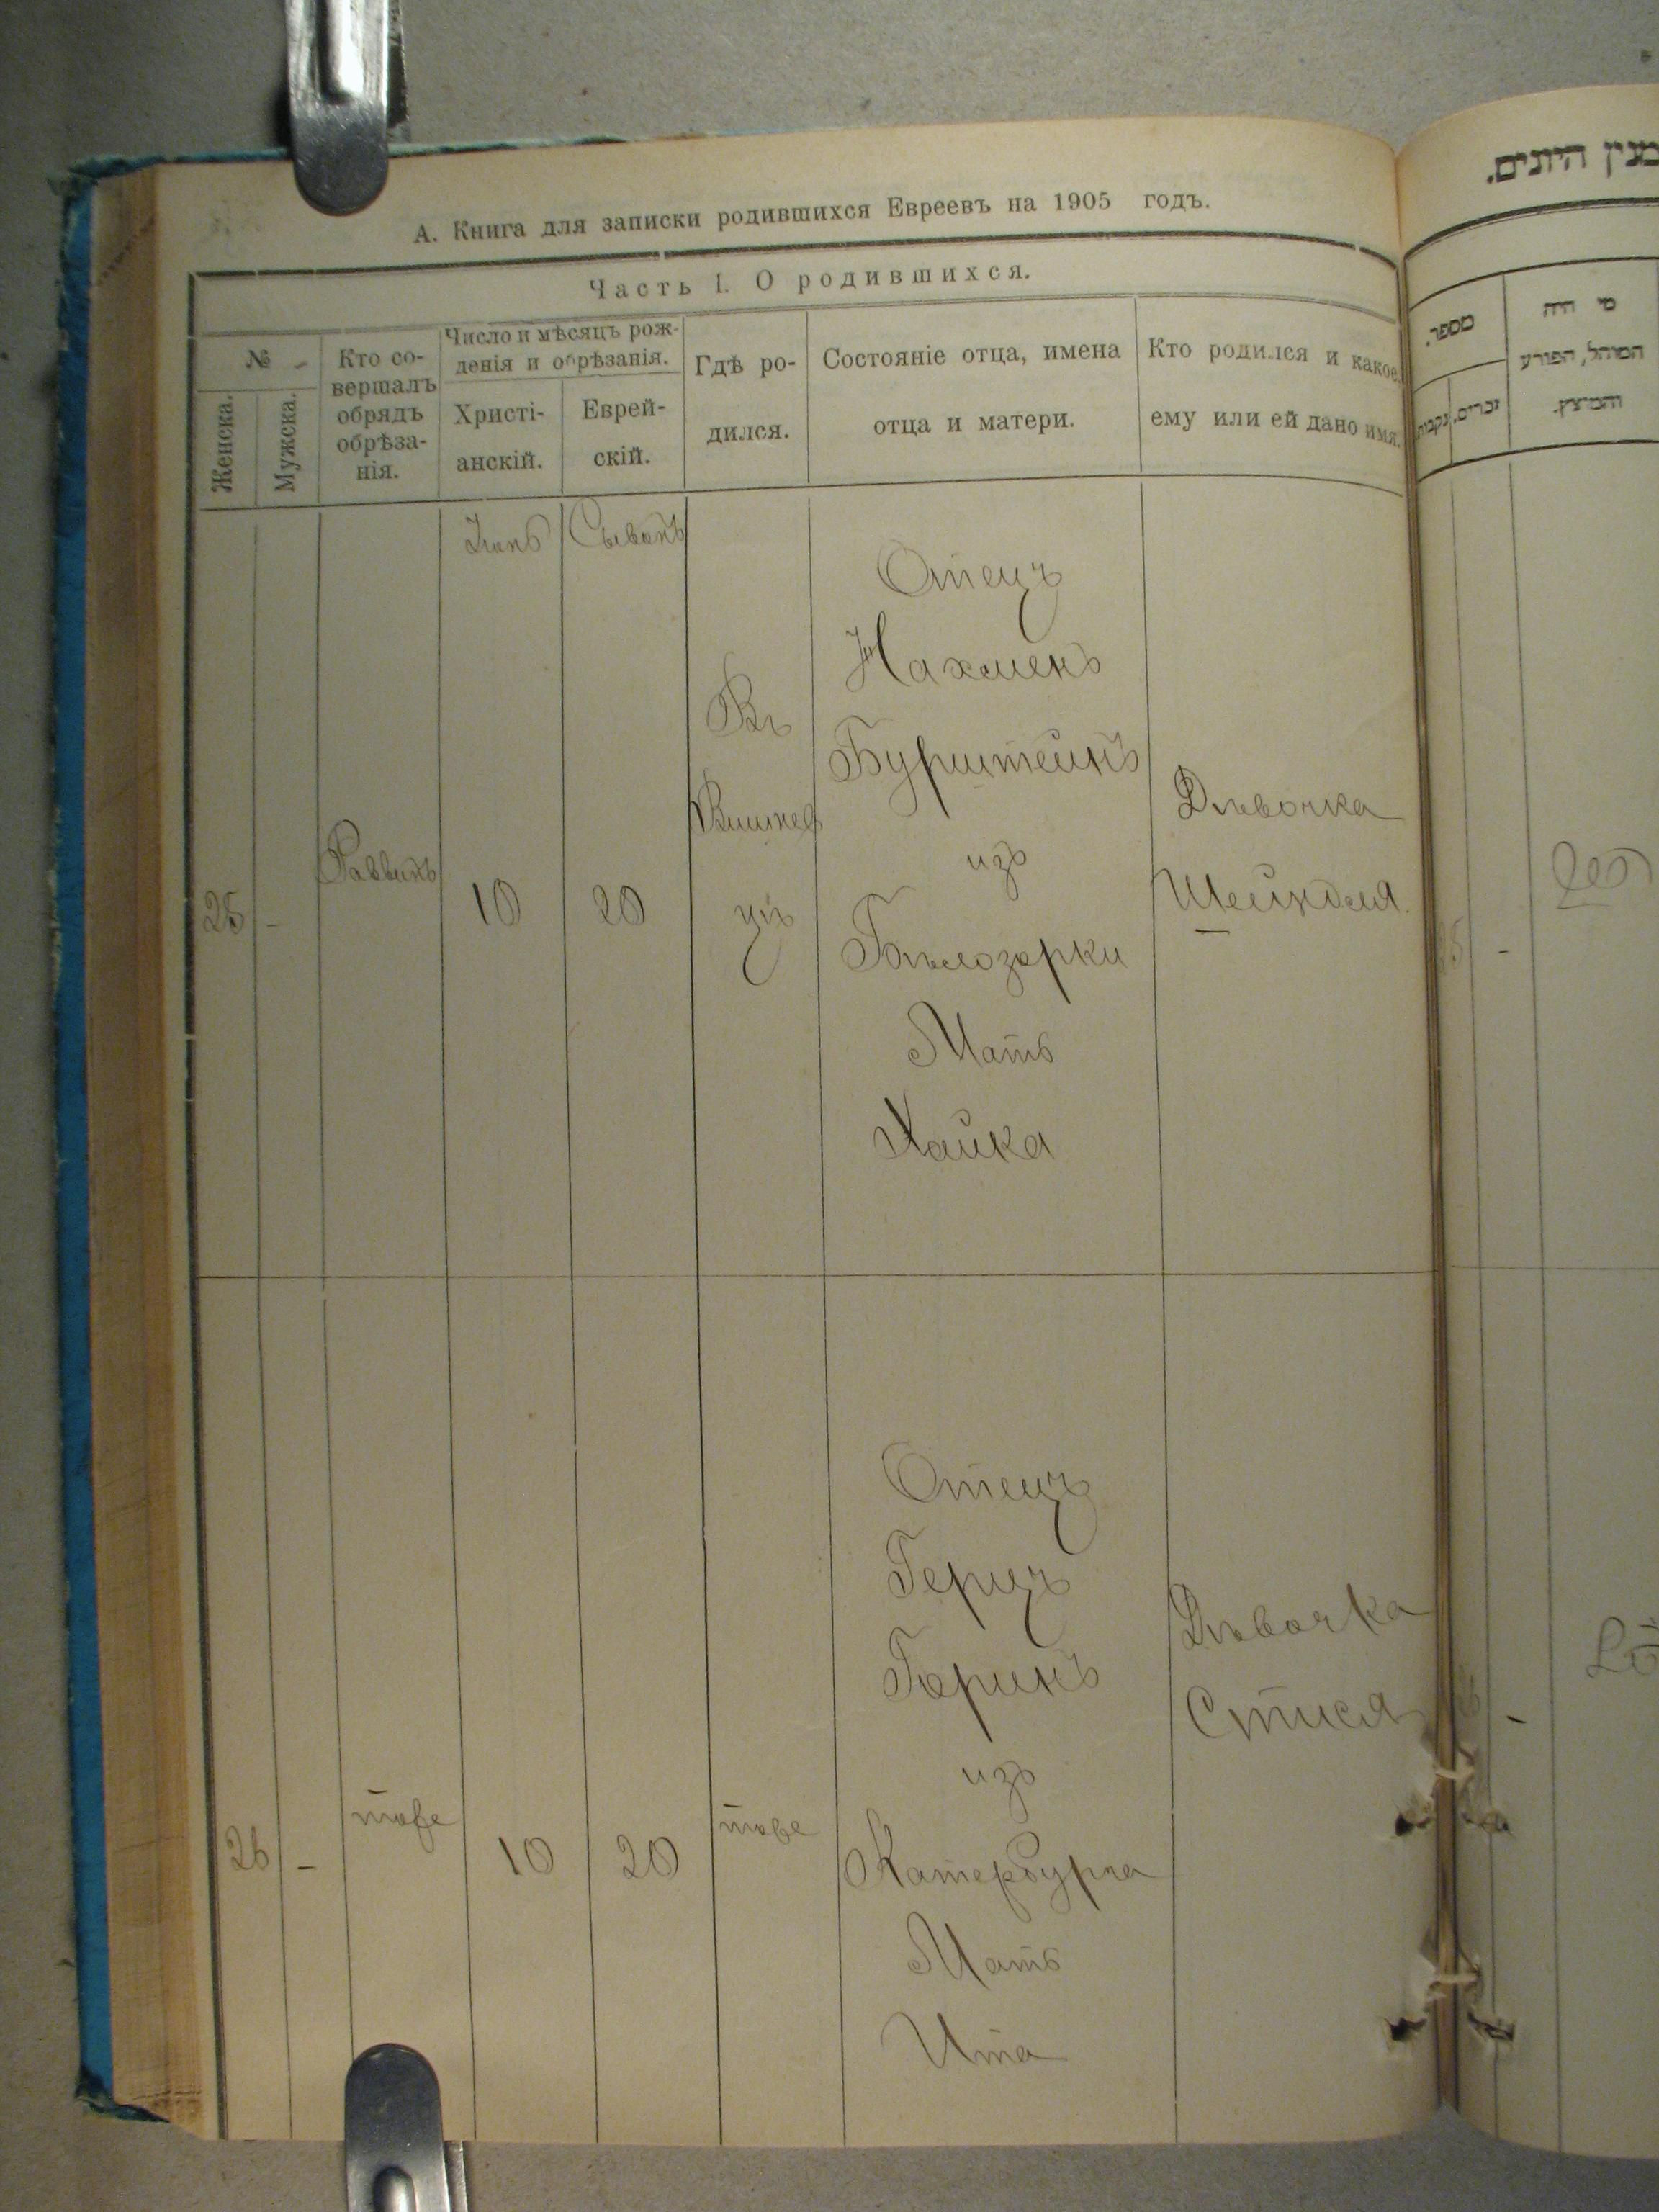 А. Книга для записки родившихся Евреевъ на 1905 годъ.
Часть I. О родившихся.
№
Женска.
Мужска.
Кто со-
вершалъ
обрядъ
обрѣза-
нія.
Число и мѣсяцъ рож-
денія и обрѣзанія.
Христі-
анскій.
Еврей-
скій.
Гдѣ ро-
дился.
Состояніе отца, имена
отца и матери.
Кто родился и какое
ему или ей дано имя.
25
-
Раввинъ
Іюнь
10
Сыванъ
20
Въ
Вишнев
цѣ
Отецъ
Нахменъ
Бурштейнъ
изъ
Бѣлозорки
Мать
Хайка
Дѣвочка
Шейндля
26
-
тоже
10
20
тоже
Отецъ
Герцъ
изъ
Катербурга
Мать
Ита
Дѣвочка
מנין היונים.
מספר.
נקבות
זכרים.
מי היה
המוהל, הפורע
והמוצץ.
25
-
-